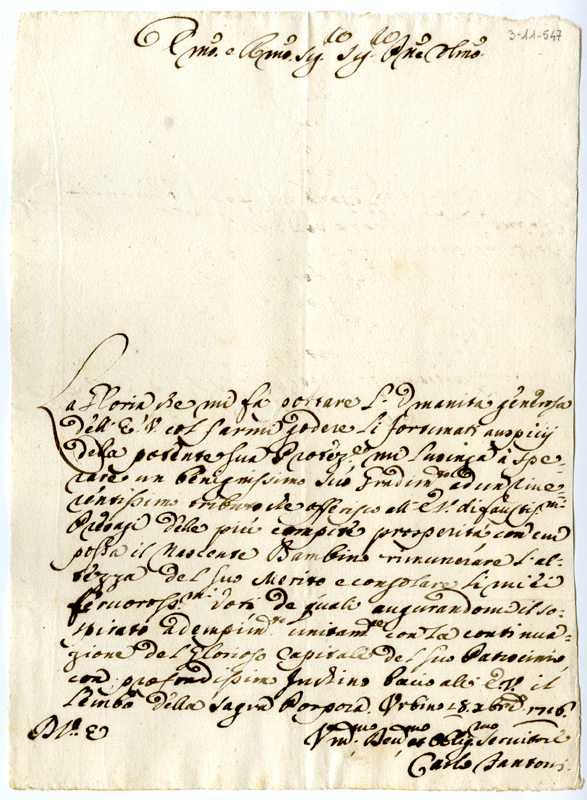 3-11-547
Emo. e Rmo. Sig. Sig. Pne Colmo.
La Gloria che mi fà portare l'Umanità generosa
dell'E. V. col farmi godere li fortunati auspicij
della potente sua Protez.e mi lusinga à spe-
rare un benignissimo suo gradim.to ad un rive-
rentissimo tributo che offerisco all'E.V. di faustissmi
Presagi delle più compite prosperità con cui
possa il Nascente Bambino rimunerare l'al-
tezza del suo Merito e consolare li miei
fervoros.mi voti de quali augurandomi il so-
spirato adempim.to unitam.te con la continua-
zione del Glorioso Capitale del suo Patrocinio,
con profondissimo Inchino bacio all'E.V. il
Lembo della Sagra Porpora. Urbino 18 Xbre 1716.
D.V.E.
Um.mo Dev.mo et Oblig.mo Servitore
Carlo